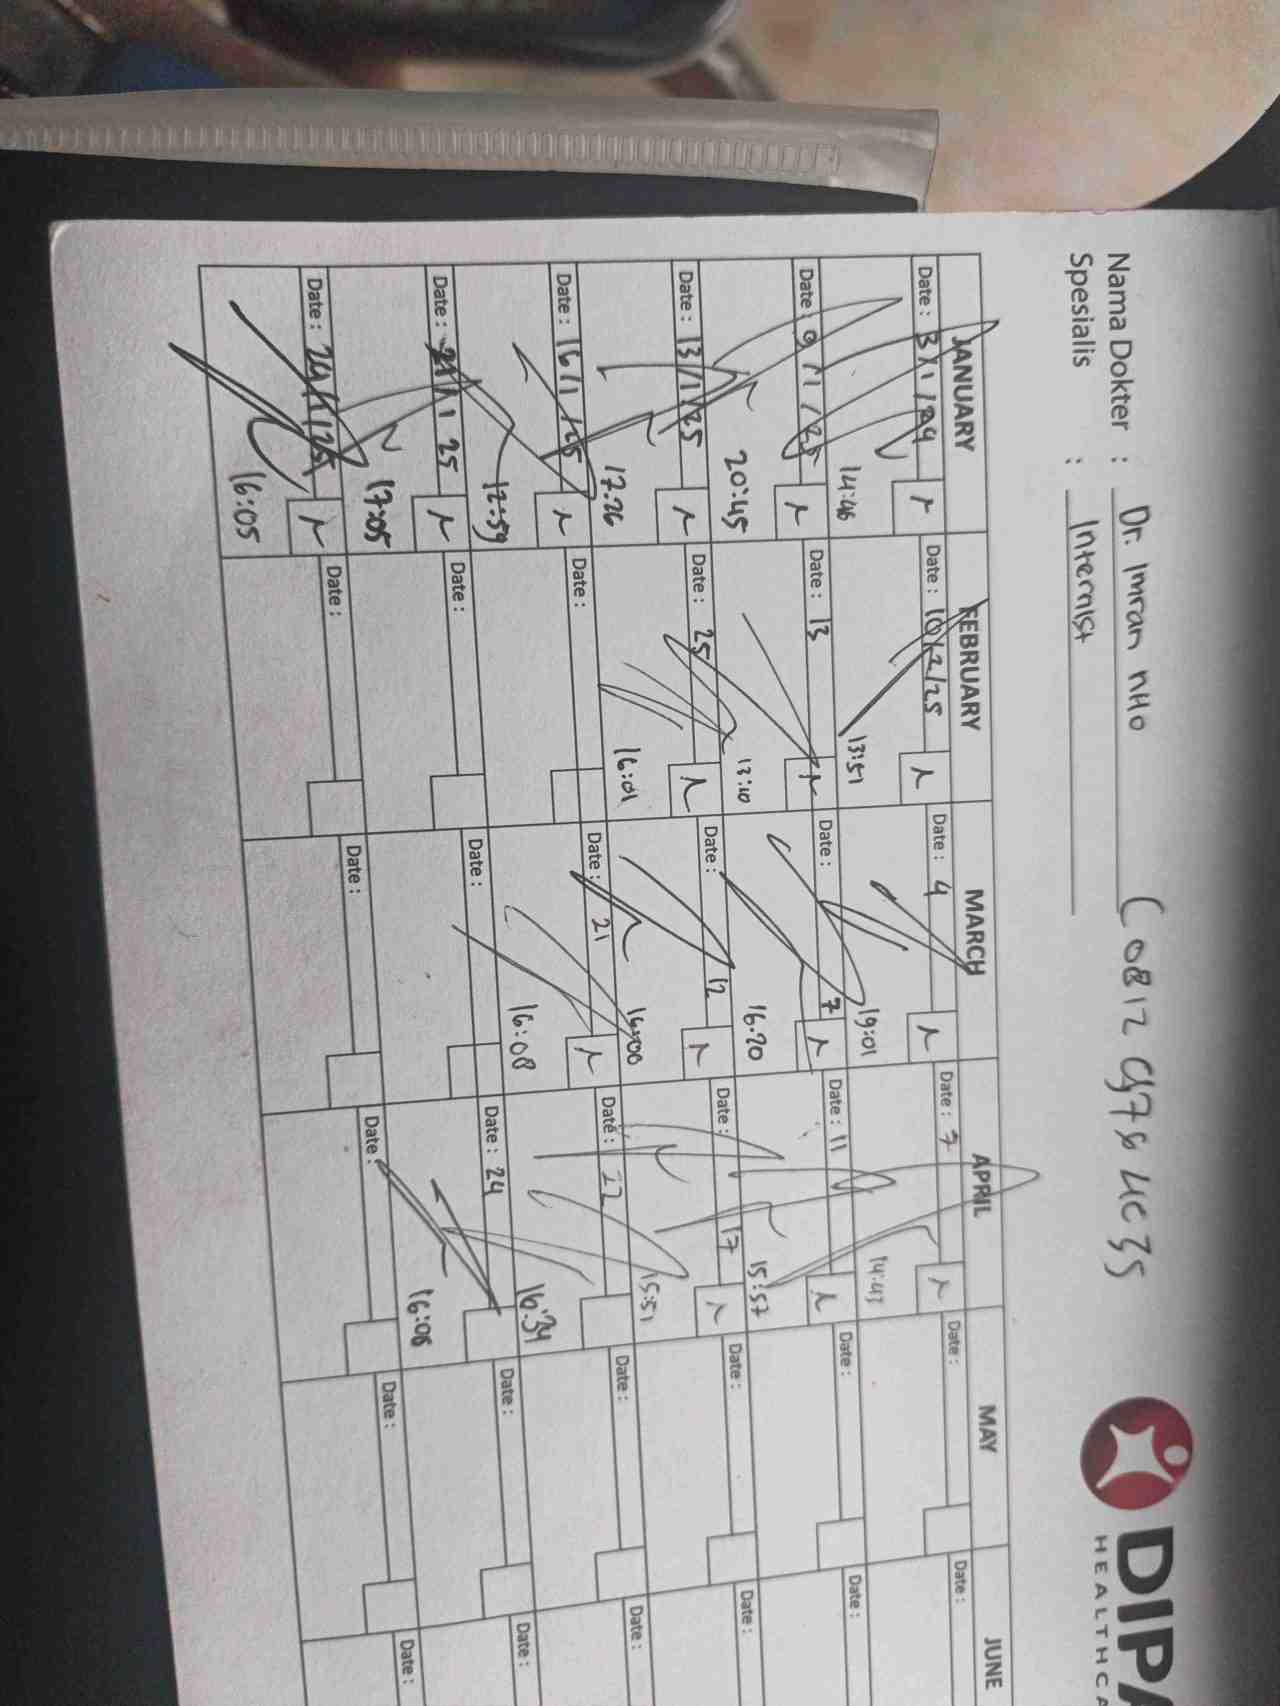 Nama Dokter : Dr. Imran NHO
Spesialis : Internist
DIPA
HEALTHCA
JANUARY FEBRUARY MARCH APRIL MAY JUNE
Date : 3/1/24 Date : 10/2/25 Date : 4 Date : 7 Date : Date :
14:46 13:51 19:01 14:43
Date : 9/1/25 Date : 13 Date : 7 Date : 11 Date : Date :
20:45 13:10 16.20 15:57
Date : 13/1/25 Date : 25 Date : 12 Date : 17 Date : Date :
17:26 16:01 16:00 15:51
Date : 16/1/25 Date : Date : 21 Date : 22 Date : Date :
12:59 16:08 16:34
Date : 21/1 25 Date : Date : Date : 24 Date : Date :
17:05 16:08
Date : 24/1/25 Date : Date : Date : Date : Date :
16:05